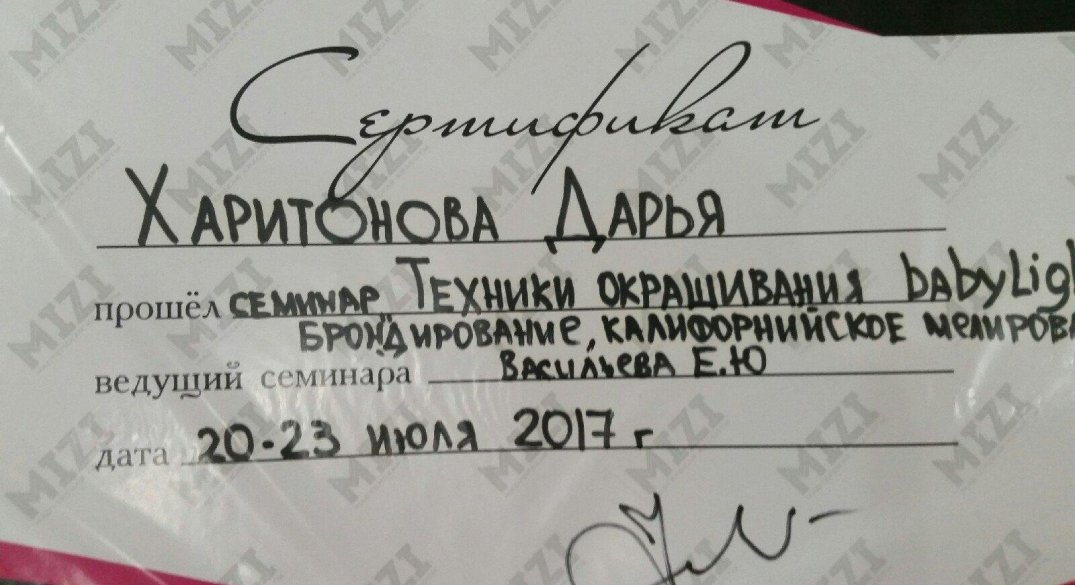 Сертификат
Харитонова Дарья
прошёл семинар „Техники окрашивания babyLigh
Брондирование, калифорнийское мелирова
ведущий семинара Васильева Е.Ю
дата 20-23 июля 2017 г
MIZI